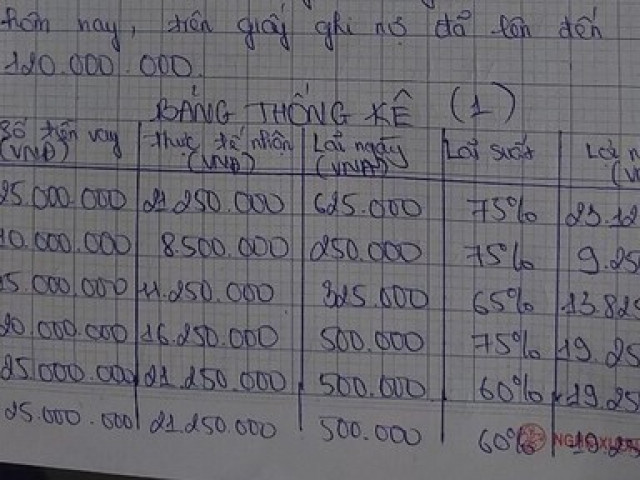 hôm nay, trên giấy ghi nợ đã lên đến
120.000.000.
BẢNG THỐNG KÊ (1)
Số tiền vay thực tế nhận Lãi ngày Lãi suất Lãi
(VNĐ) (VNĐ) (VNĐ)
25.000.000 21.250.000 625.000 75% 23.12
10.000.000 8.500.000 250.000 75% 9.25
15.000.000 11.250.000 325.000 65% 13.825
20.000.000 16.250.000 500.000 75% 19.25
25.000.000 21.250.000 500.000 60% 19.25
25.000.000 21.250.000 500.000 60%